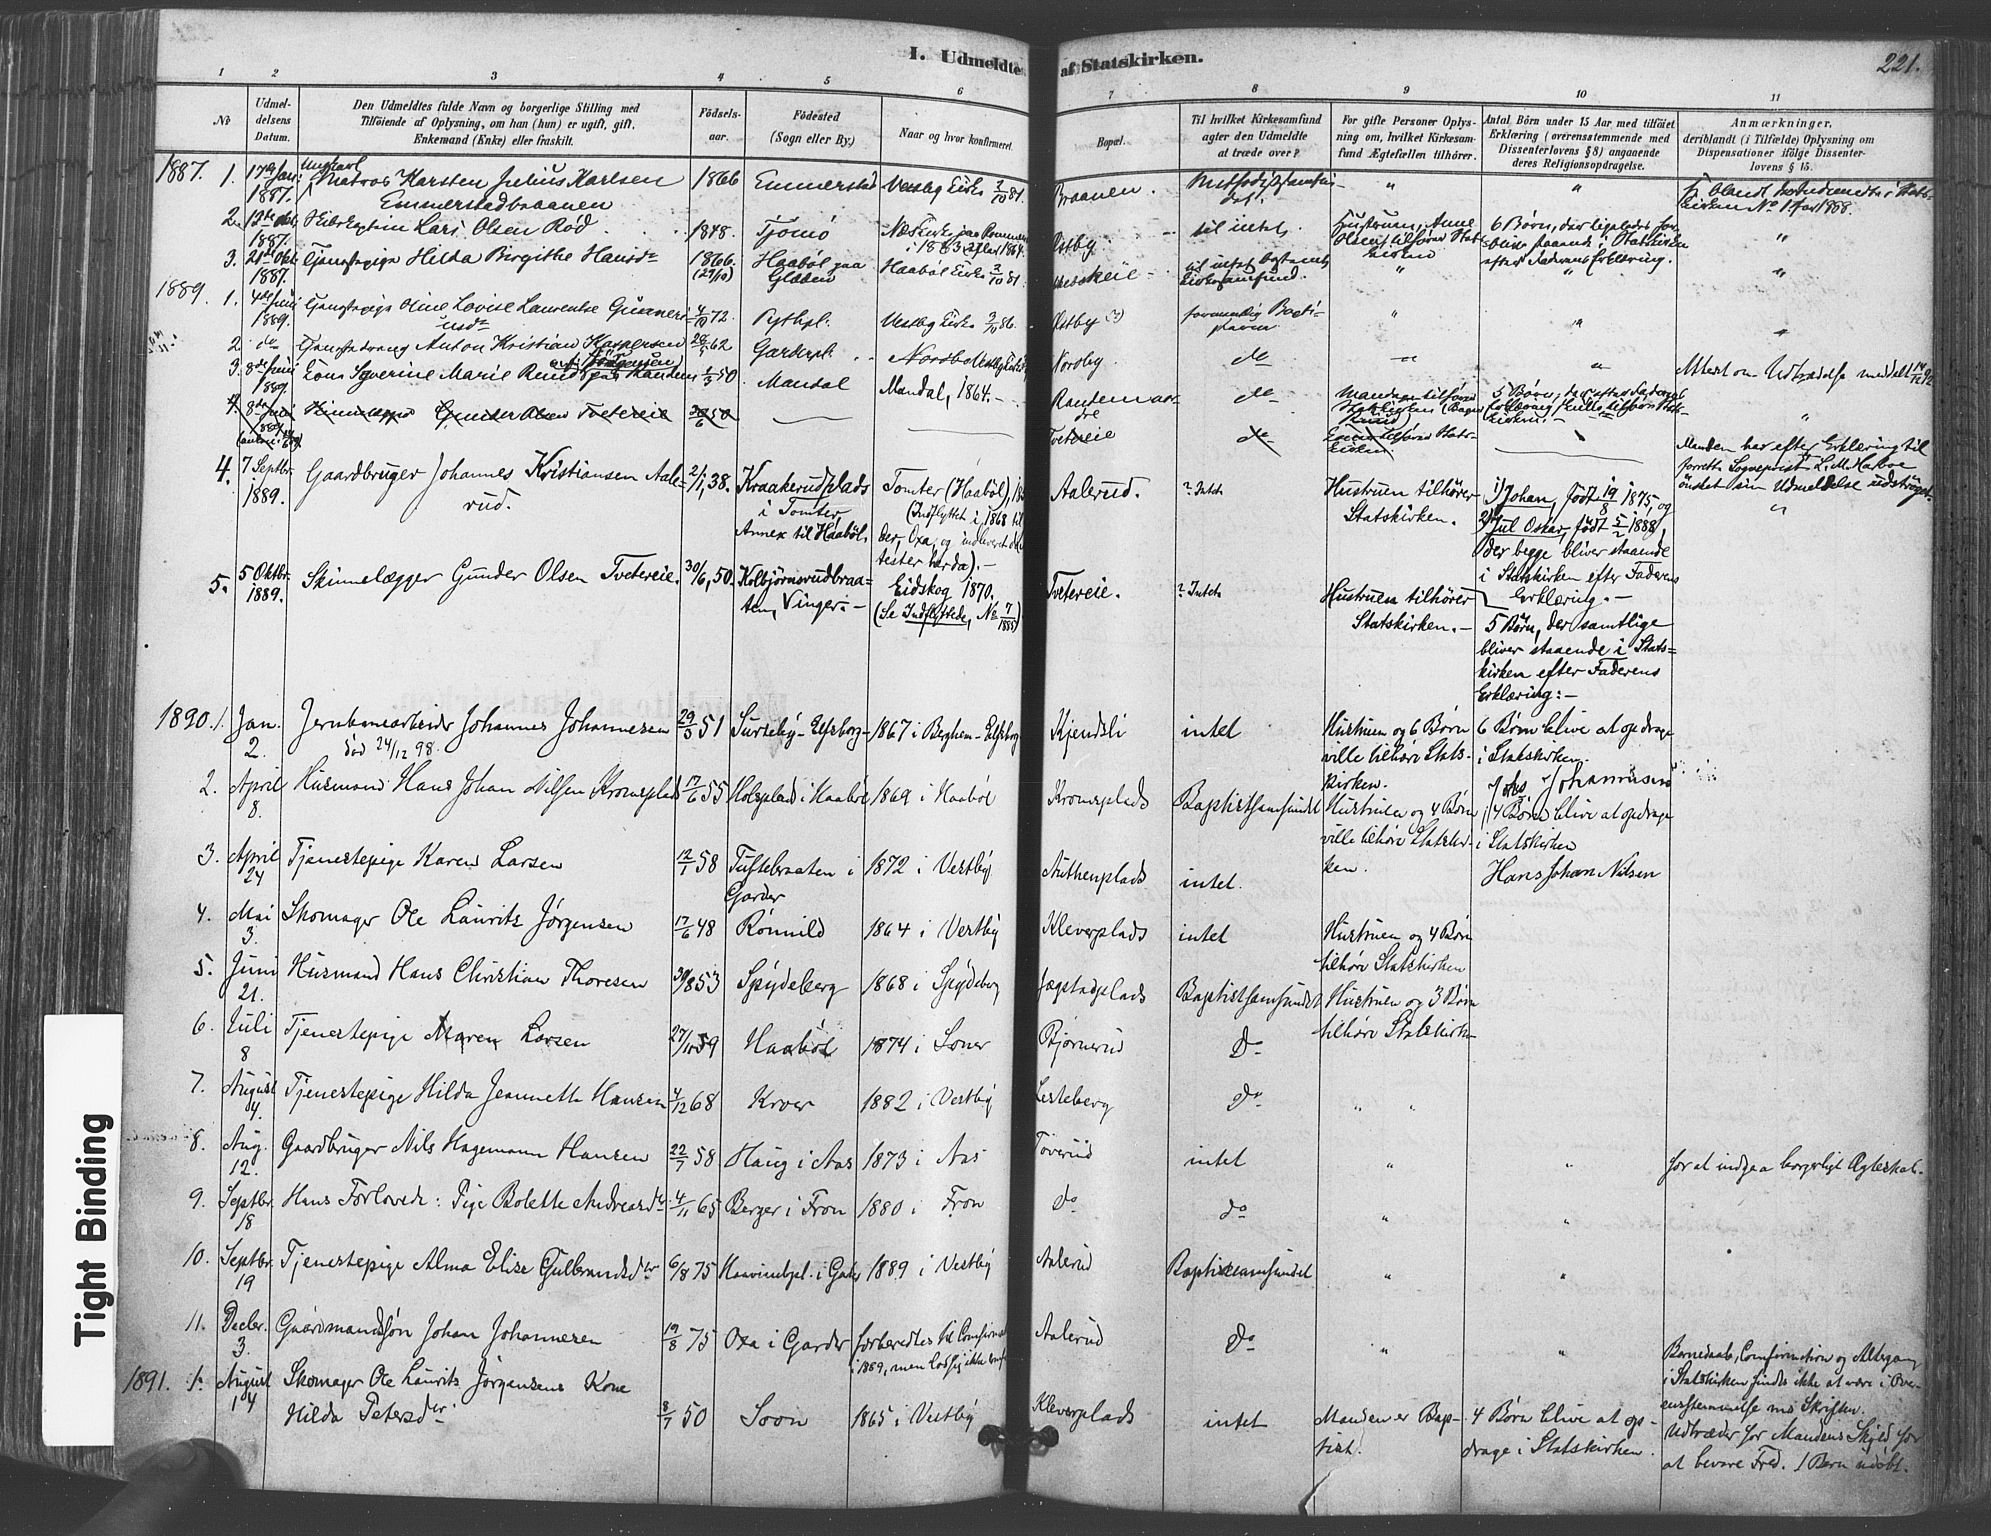 I. Udmeldte af Statskirken.
221.
1 2 3 4 5 6 7 8 9 10 11
No
Udmel-
delsens
Datum.
Den Udmeldtes fulde Navn og borgerlige Stilling med
Tilføiende af Oplysning, om han (hun) er ugift, gift,
Enkemand (Enke) eller fraskilt.
Fødsels-
aar.
Fødested
(Sogn eller By.)
Naar og hvor konfirmeret.
Bopæl.
Til hvilket Kirkesamfund
agter den Udmeldte
at træde over?
For gifte Personer Oplys-
ning om, hvilket Kirkesam-
fund Ægtefællen tilhører.
Antal Børn under 15 Aar med tilføiet
Erklæring (overensstemmende med
Dissenterlovens § 8) angaaende
deres Religionsopdragelse.
Anmærkninger,
deriblandt (i Tilfælde) Oplysning om
Dispensationer ifølge Dissenter-
lovens § 15.
1887. 1. 17de Jan. 1887. Ungkarl Matros Karsten Julius Karlsen Emmerstadbraanen 1866 Emmerstad Vestby Kirke 2/10 81. Braanen. " "
No 1 for 1888.
2. 1887. Lars Olsen Rød. 1848. Tjømø Østby til intet. Hustruen Anne "
6 Børn, der ligeledes for-
blive staaende i Statskirken
efter Faderens Erklæring.
3. 21de Okt. 1887. Tjenestepige Hilda Birgithe Hansdr 1866. (29/10) Haabøl Haabøl Kirke 2/10 81. " " "
1889. 1. 4de Juni 1889. Tjenestepige Oline Lovise Laurentse Gunneriusdr 4/10 72. Vestby Kirke 3/10 86. Østby " " "
2 do Tjenestedreng Anton Kristian Kaspersen 62 Garderpl. Nordby. do " "
3. 8de Juni 1889. Kone Severine Marie 1/3 50. Mandal Mandal, 1864. – do
Attest om Udtrædelse meddelt
4. 8de Juni 1889 Skinnelægger Gunder Olsen Tvetereie 30/6 50 Tvetereie do
Manden har efter Erklæring til
ønsket sin Udmeldelse udstrøget.
4. 7 Septbr. 1889. Gaardbruger Johannes Kristiansen Aale-
rud. 2/1, 38. Kraakerudplads
i Tomter,
Annex til Haabøl. Tomter (Haabøl),
(Indflyttet i 1868 til
Aalerud. ? Intet Hustruen tilhører
Statskirken.
1) Johan, født 19/8 1875, og
2) Jul Oskar, født 5/2 1888,
der begge bliver staaende
i Statskirken efter Faderens
Erklæring. –
"
5. 5 Oktbr. 1889. Skinnelægger Gunder Olsen Tvetereie. 30/6, 50. Kolbjørnsrudbraa=
ten, Vinger. – Eidskog 1870.
(Se Indflyttede, No 7/1885) Tvetereie. ? Intet Hustruen tilhører
Statskirken. –
5 Børn, der samtlige
bliver staaende i Stats=
kirken efter Faderens
Erklæring: –
1890. 1. Jan. 2. Jernbanearbeider Johannes Johannesen 29/3 51 Surteby – Elfsborg – 1867 i Berghem – Elfsborg Kjendsli intet
død 24/12 98.
Hustruen og 6 Børn
ville tilhøre Stats-
kirken.
6 Børn blive at opdrage
i Statskirken.
Johs Johannesen
2. April 8. Husmand Hans Johan Nilsen Kromsplads 17/6 55 Holsplads i Haabøl 1869 i Haabøl Kromsplads Baptistsamfundet
Hustruen og 4 Børn
ville tilhøre Statskir-
ken.
4 Børn blive at opdrage
i Statskirken
Hans Johan Nilsen
3. April 24 Tjenestepige Karen Larsen 12/1 58 Tuftebraaten i
Garder 1872 i Vestby Authenplads intet.
4. Mai 3. Skomager Ole Laurits Jørgensen 17/6 48 Rømnild 1864 i Vestby Kleverplads intet
Hustruen og 4 Børn
tilhøre Statskirken
5. Juni 21. Husmand Hans Christian Thoresen 30/8 53 Spydeberg 1868 i Spydeberg Jægstadplads Baptistsamfundet
Hustruen og 3 Børn
tilhøre Statskirk-
6. Juli 8 Tjenestepige Maren Larsen 27/11 59 Haabøl 1874 i Soner Bjørnerud Do
7. August 4. Tjenestepige Hilda Jeannette Hansen 4/12 68 Kroer 1882 i Vestby Lesteberg Do " "
8. Aug. 12. Gaardbruger Nils Hagemann Hansen 22/7 58 Haug i Aas 1873 i Aas Toverud intet " "
for at indgaa borgerligt Ægteskab.
9. Septbr. 18 Hans Forlovede: Pige Bolette Andreasdr 4/11 65 Berger i Fron 1880 i Fron do do " "
10. Septbr. 19 Tjenestepige Alma Elise Gulbrandsdr 6/8 75 Haavimbpl. i Garder 1889 i Vestby Aalerud Baptistsamfundet " "
11. Decbr. 3. Gaardmandssøn Johan Johannesen 19/8 75 Oxa i Garder forberedtes til Confirmat.
i 1889, men lod sig ikke konf. Aalerud Do " "
Barnedaab, Confirmation og Altergang
i Statskirken findes ikke at være i Over-
ensstemmelse med Skriften.
1891. 1. August 14 Skomager Ole Laurits Jørgensens Kone
Hilda Petersdr. 8/7 50 Soon 1865 i Vestby Kleverplads intet
Manden er Bap-
tist.
4 Børn blive at op-
drage i Statskirken.
Udtræder for Mandens Skyld for
at bevare Fred. 1 Barn udøbt.
Tight Binding